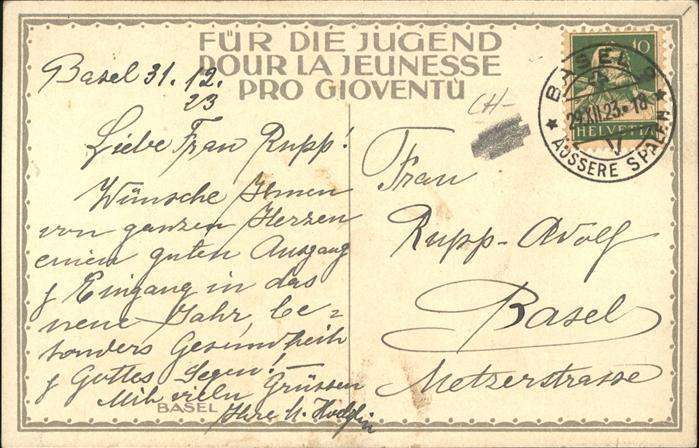 FÜR DIE JUGEND
POUR LA JEUNESSE
PRO GIOVENTÙ
Basel 31. 12.
23
Liebe Frau Rupp!
Wünsche Ihnen
von ganzen Herzen
einen guten Ausgang
& Eingang in das
neue Jahr be=
sonders Gesundheit
& Gottes Segen!
Mit vielen Grüssen
Ihre
BASEL
CH-
Frau
Rupp-Adolf
Basel
Metzerstrasse
10
HELVETIA
BASEL 9
29.XII.23-18
V
★ ÄUSSERE SPALEN ★